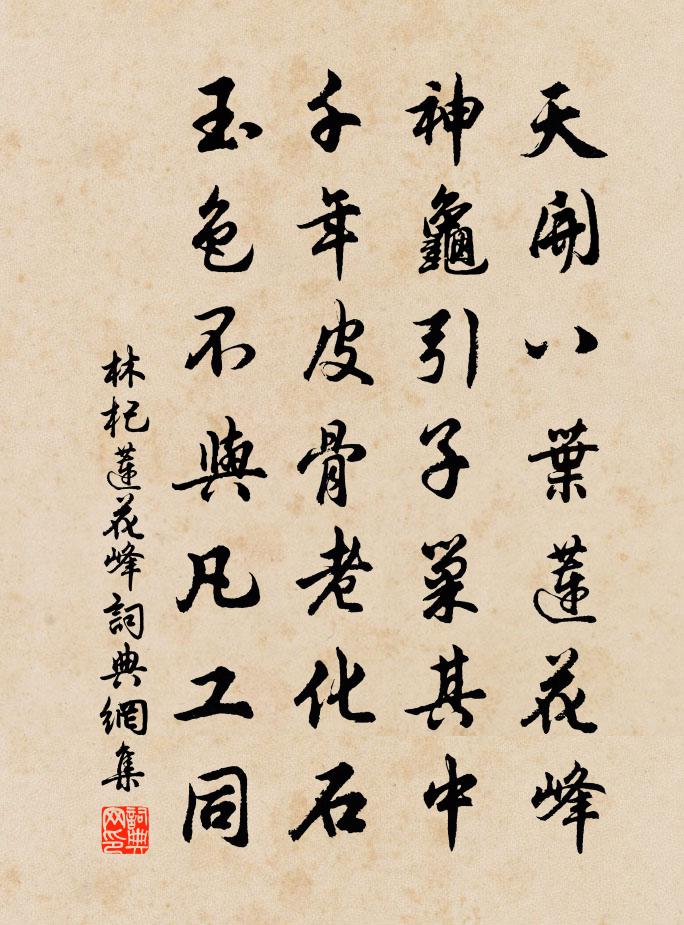 天開八葉蓮花峰
神龜引子巢其中
千年皮骨老化石
玉色不與凡工同
林杞蓮花峰詞典網集
詞典
网印